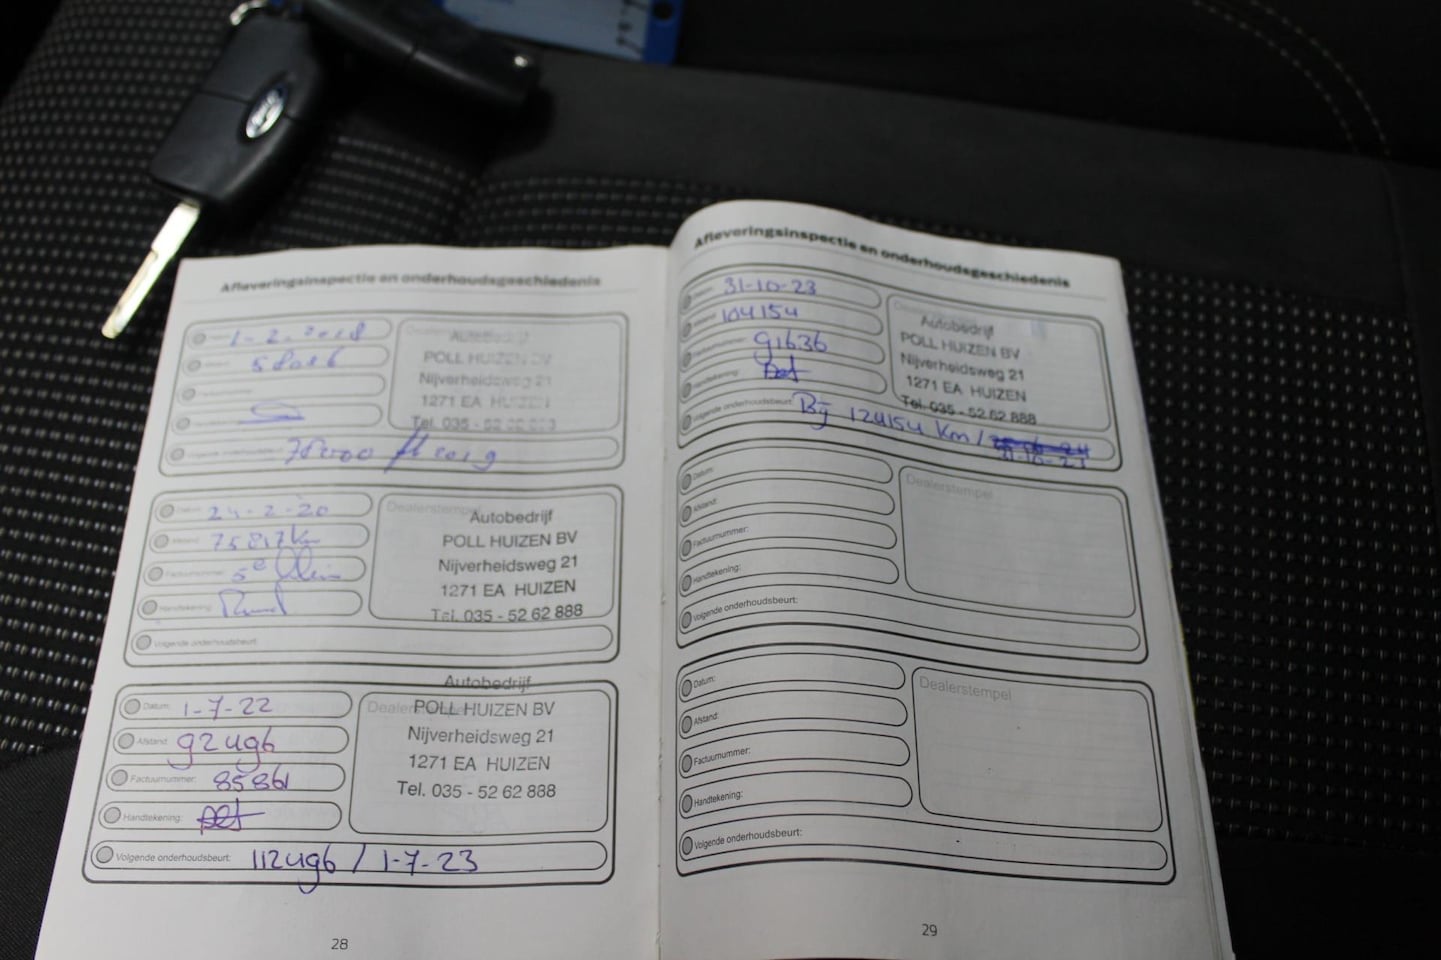 Ford
Afleveringsinspectie en onderhoudsgeschiedenis
1-2-2018
58026
Autobedrijf
POLL HUIZEN BV
Nijverheidsweg 21
1271 EA HUIZEN
Tel. 035 - 52 62 888
2019
24-2-20
75817 km
Dealerstempel
Autobedrijf
POLL HUIZEN BV
Nijverheidsweg 21
1271 EA HUIZEN
Tel. 035 - 52 62 888
Handtekening:
Volgende onderhoudsbeurt:
Datum: 1-7-22
Afstand: 92496
Factuurnummer: 85861
Handtekening:
Autobedrijf
POLL HUIZEN BV
Nijverheidsweg 21
1271 EA HUIZEN
Tel. 035 - 52 62 888
Volgende onderhoudsbeurt: 112496 / 1-7-23
28
Afleveringsinspectie en onderhoudsgeschiedenis
31-10-23
104154
91636
Handtekening:
Autobedrijf
POLL HUIZEN BV
Nijverheidsweg 21
1271 EA HUIZEN
Tel. 035 - 52 62 888
Volgende onderhoudsbeurt: Bij 124154 km /
31-10-23
Datum:
Afstand:
Factuurnummer:
Handtekening:
Dealerstempel
Volgende onderhoudsbeurt:
Datum:
Afstand:
Factuurnummer:
Handtekening:
Dealerstempel
Volgende onderhoudsbeurt:
29